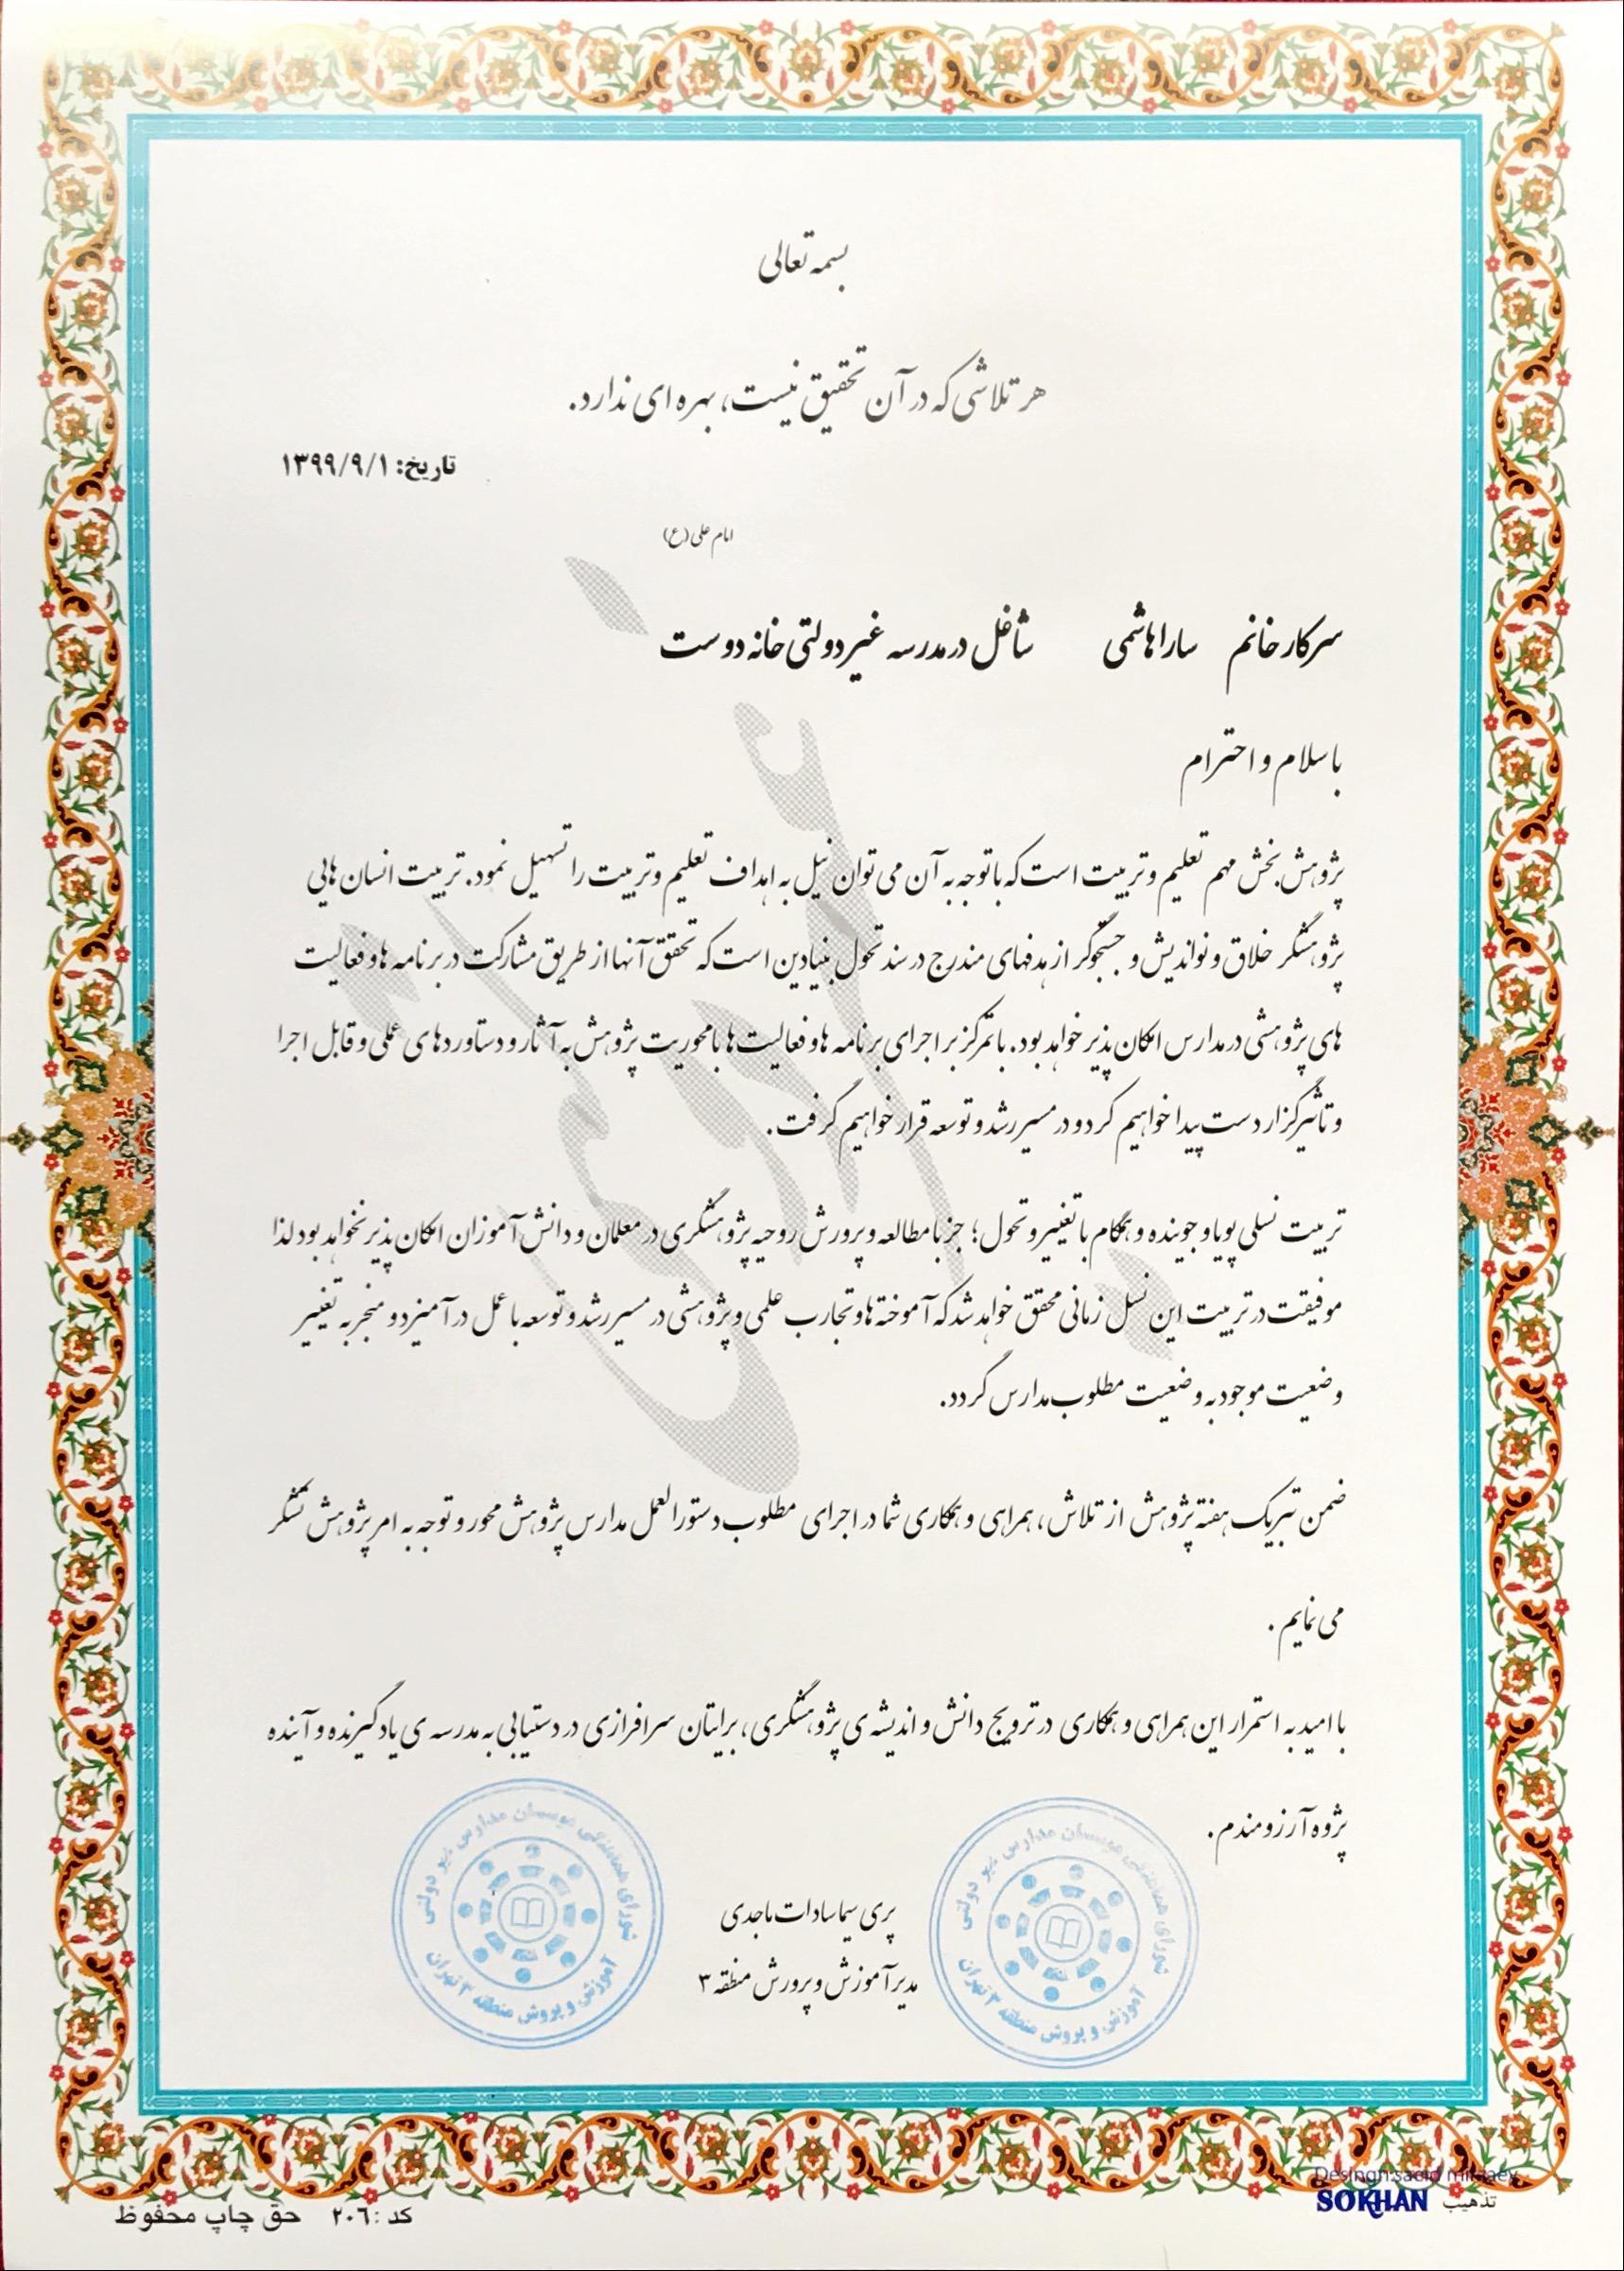 بسمه تعالی
هر تلاشی که در آن تحقیق نیست، بهره ای ندارد.
تاریخ: ۱۳۹۹/۹/۱
امام علی (ع)
سرکار خانم سارا هاشمی شاغل در مدرسه غیر دولتی خانه دوست
با سلام و احترام
پژوهش بخش مهم تعلیم و تربیت است که با توجه به آن می توان نیل به اهداف تعلیم و تربیت را تسهیل نمود. تربیت انسان هایی
پژوهشگر خلاق و نواندیش و جستجوگر از هدفهای مندرج در سند تحول بنیادین است که تحقق آنها از طریق مشارکت در برنامه ها و فعالیت
های پژوهشی در مدارس امکان پذیر خواهد بود. با تمرکز بر اجرای برنامه ها و فعالیت ها با محوریت پژوهش به آثار و دستاوردهای عملی و قابل اجرا
و تاثیرگزار دست پیدا خواهیم کرد و در مسیر رشد و توسعه قرار خواهیم گرفت.
تربیت نسلی پویا و جوینده و همگام با تغییر و تحول؛ جز با مطالعه و پرورش روحیه پژوهشگری در معلمان و دانش آموزان امکان پذیر نخواهد بود لذا
موفیقت در تربیت این نسل زمانی محقق خواهد شد که آموخته ها و تجارب علمی و پژوهشی در مسیر رشد و توسعه با عمل در آمیزد و منجر به تغییر
وضعیت موجود به وضعیت مطلوب مدارس گردد.
ضمن تبریک هفته پژوهش از تلاش، همراهی و همکاری شما در اجرای مطلوب دستورالعمل مدارس پژوهش محور و توجه به امر پژوهش تشکر
می نمایم.
با امید به استمرار این همراهی و همکاری در ترویج دانش و اندیشه ی پژوهشگری، برایتان سرافرازی در دستیابی به مدرسه ی یادگیرنده و آینده
پژوه آرزومندم.
پری سیما سادات ماجدی
مدیر آموزش و پرورش منطقه ۳
شورای هماهنگی موسسان مدارس غیر دولتی
آموزش و پروش منطقه ۳ تهران
شورای هماهنگی موسسان مدارس غیر دولتی
آموزش و پروش منطقه ۳ تهران
تذهیب SOKHAN
کد : ۲۰٦ حق چاپ محفوظ